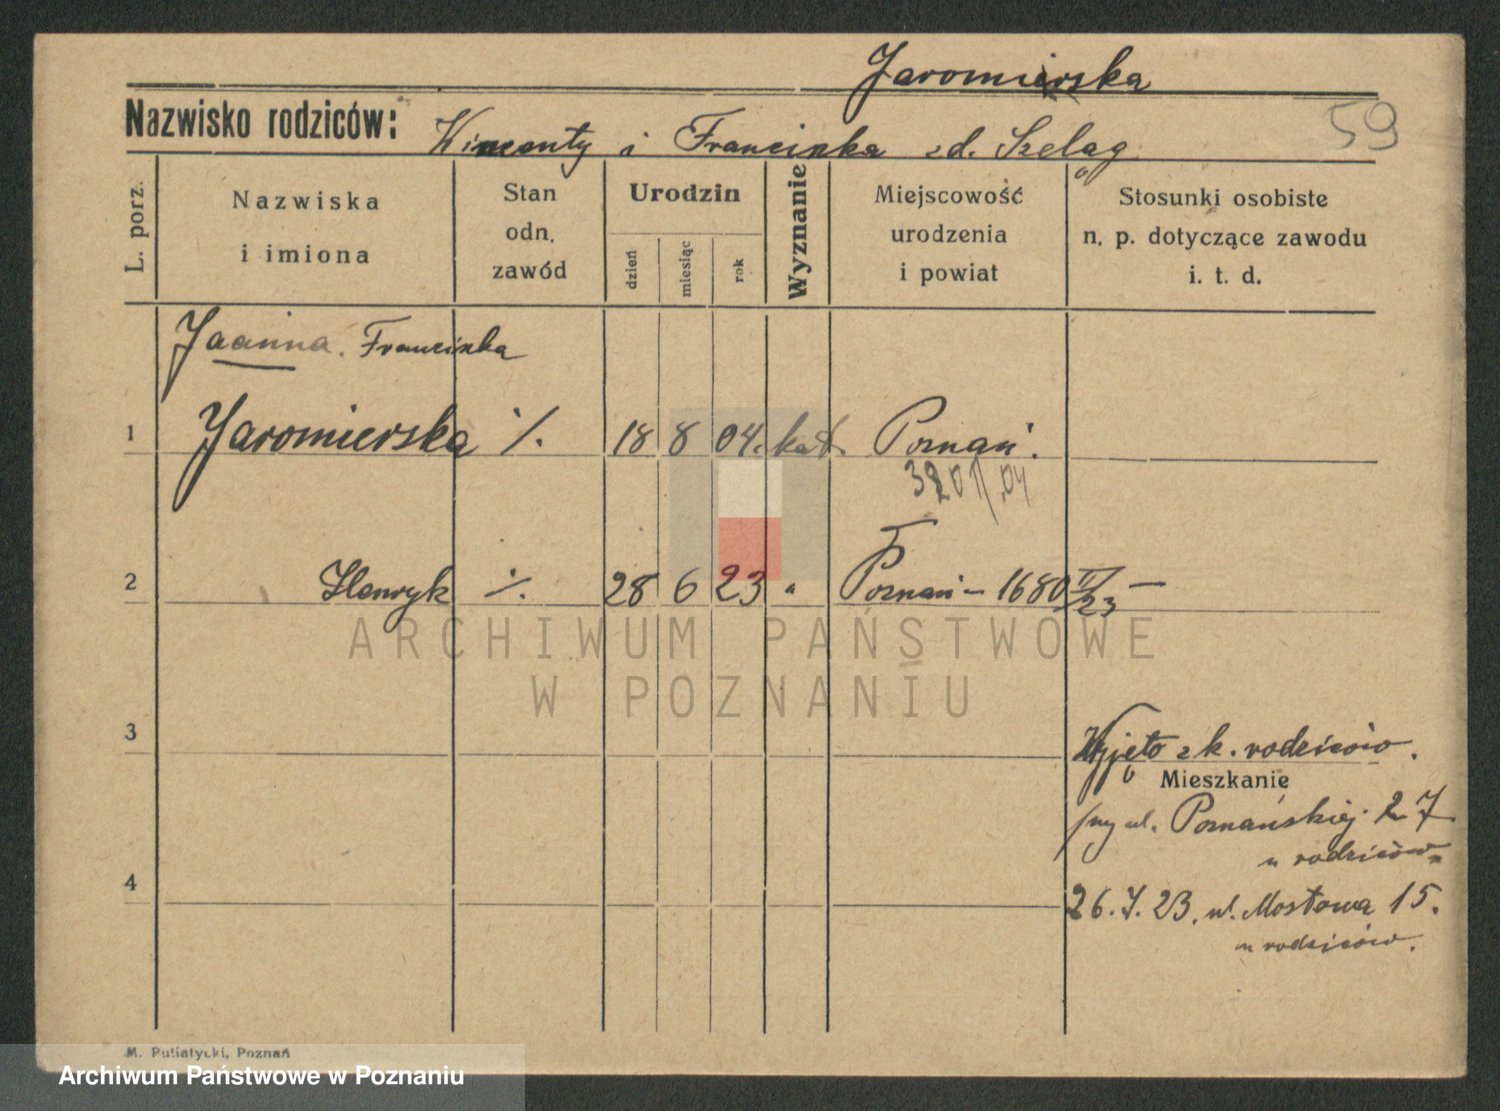 Jaromierska
59
Nazwisko rodziców: Wincenty i Franciszka zd. Szeląg
L. porz.
Nazwiska i imiona
Stan odn. zawód
Urodzin
dzień
miesiąc
rok
Wyznanie
Miejscowość urodzenia i powiat
Stosunki osobiste n. p. dotyczące zawodu i. t. d.
Joanna. Franciszka
1 Jaromierska ·/. 18 8 04. kat. Poznań.
2 Henryk ·/. 28 6 23 " Poznań – 1680 II/23 –
ARCHIWUM PAŃSTWOWE
W POZNANIU
3
Wyjęto z k. rodziców.
Mieszkanie
przy ul. Poznańskiej 27
u rodziców.
4
26.7.23. ul. Mostowa 15.
u rodziców.
M. Putiatycki, Poznań
Archiwum Państwowe w Poznaniu